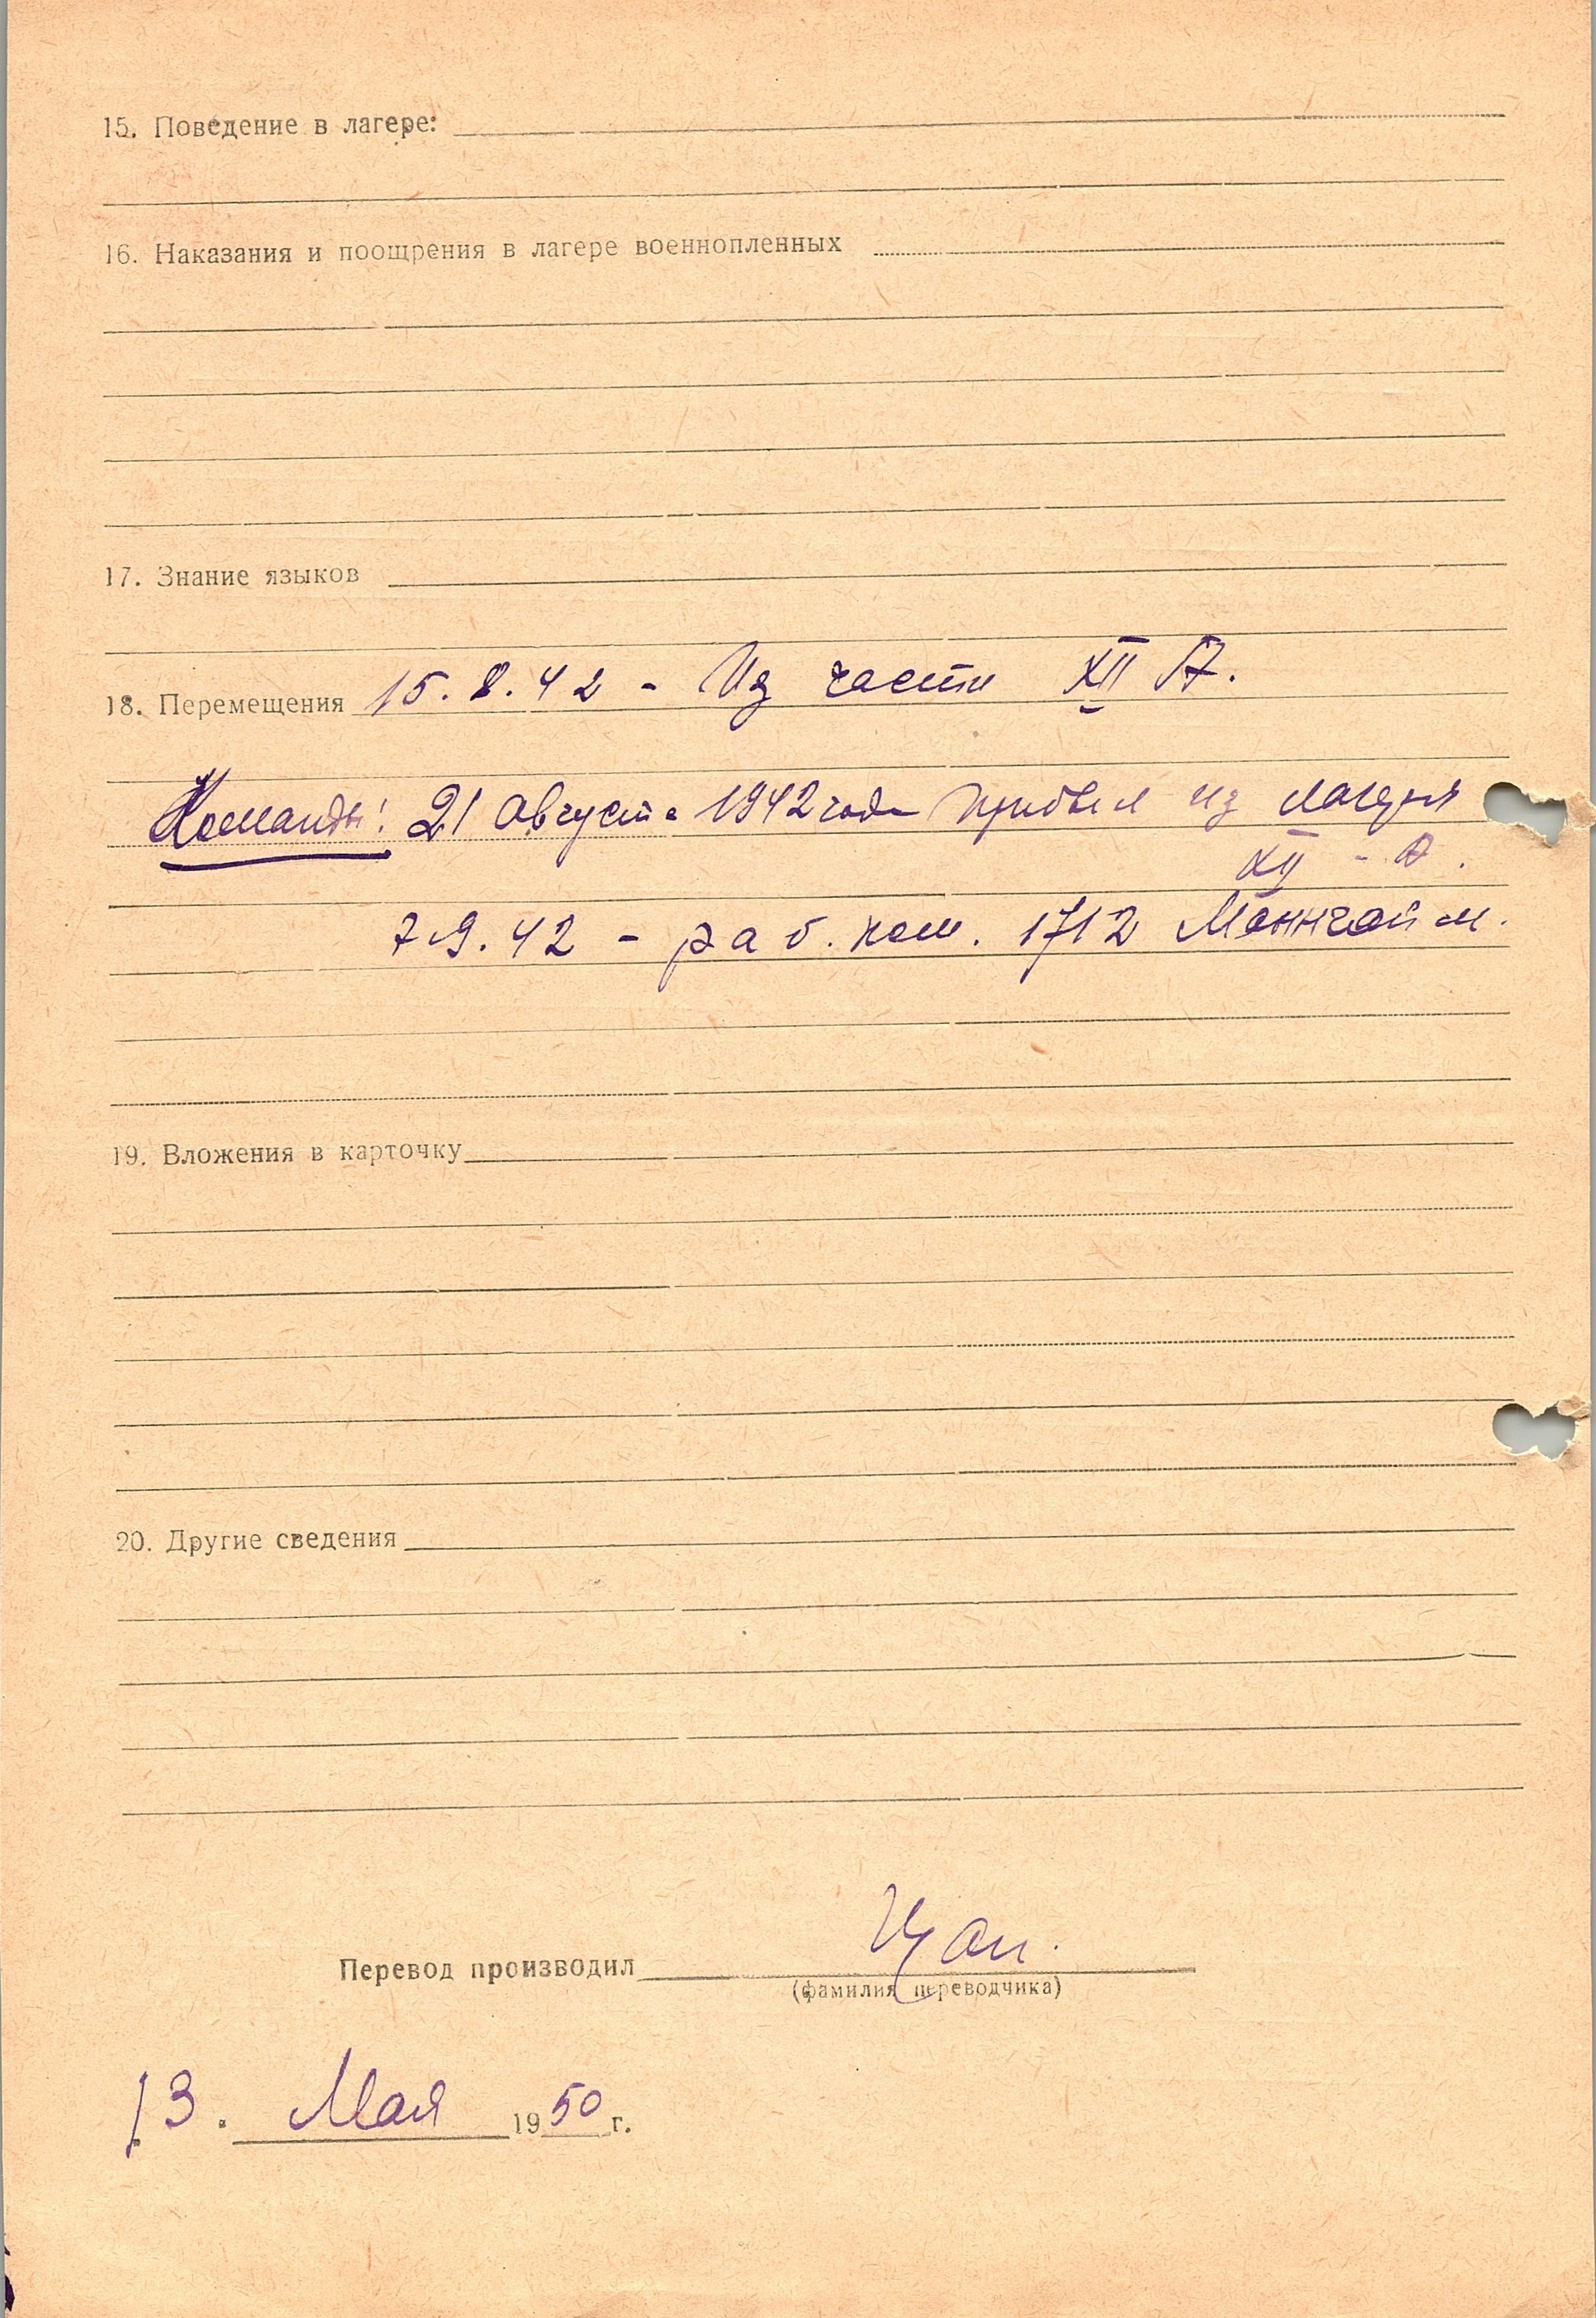 15. Поведение в лагере:
16. Наказания и поощрения в лагере военнопленных
17. Знание языков
18. Перемещения 15.8.42 - Из части XII А.
Команды: 21 августа 1942 года прибыл из лагеря
XII - А.
7.9.42 - раб. ком. 1712 Маннгайм.
19. Вложения в карточку
20. Другие сведения
Перевод производил
(фамилия переводчика)
13. Мая 1950 г.